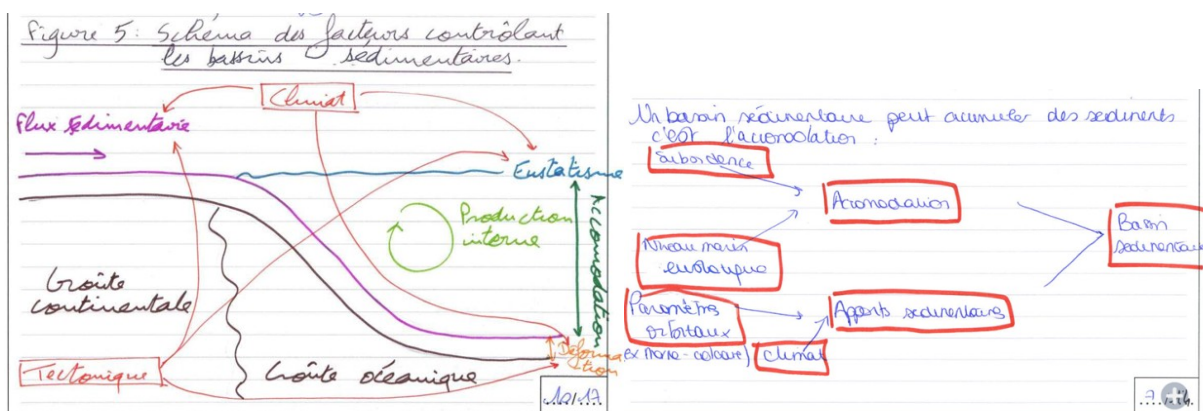 Figure 5: Schéma des facteurs contrôlant
les bassins sédimentaires.
Climat
Flux sédimentaire
Eustatisme
Accomodation
Production
interne
Croûte
continentale
Déforma
tion
Tectonique
Croûte océanique
10/17
Un bassin sédimentaire peut acumuler des sediments
c'est l'accomodation :
Subsidence
Acomodation
Bassin
sedimentaire
Niveau marin
eustatique
Paramètres
orbitaux
Apports sedimentaires
ex marno-calcaire)
climat